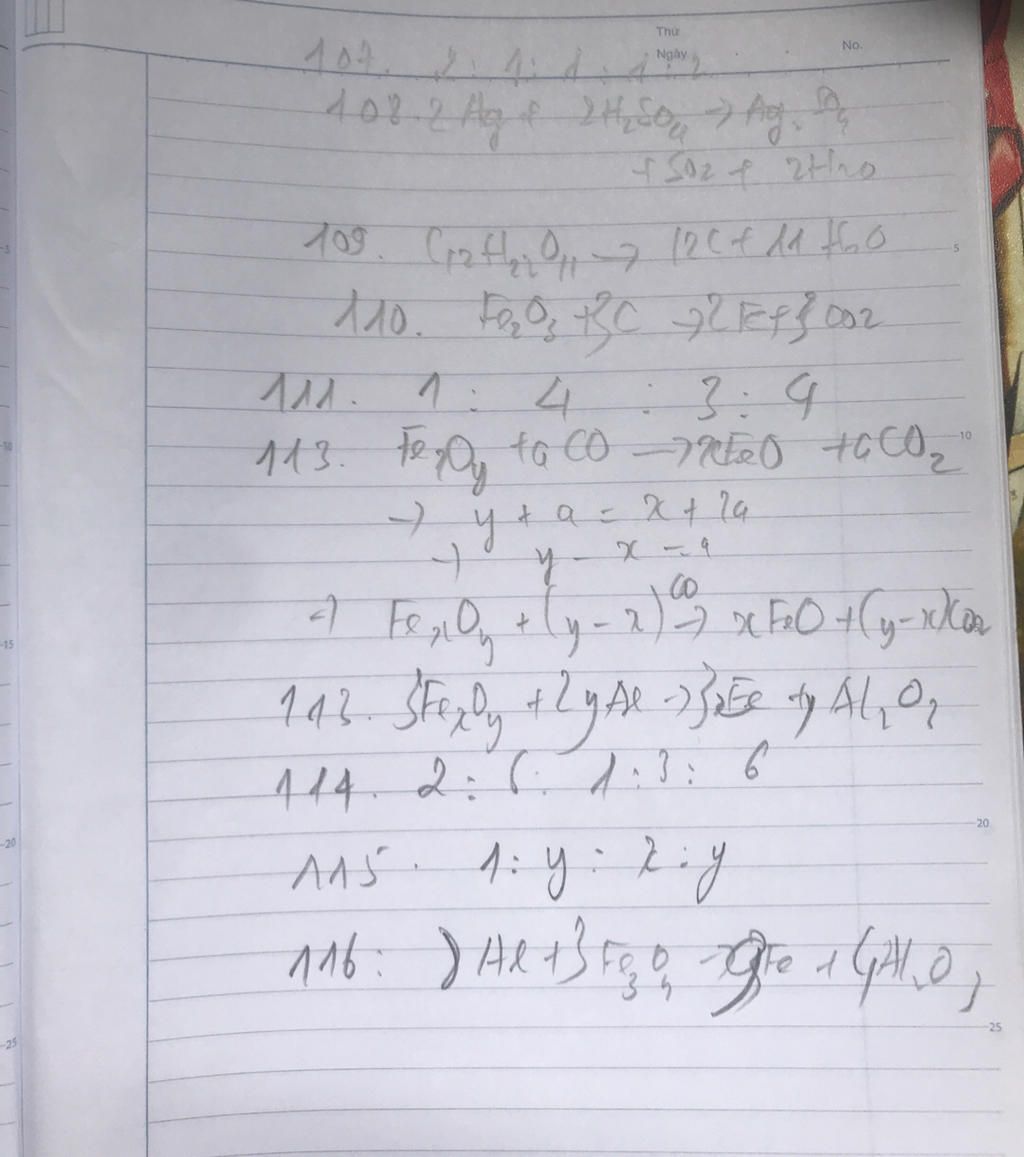 Thứ
Ngày
No.
107. 2 : 1 : 1 : 1 : 2
108. 2Ag + 2H₂SO₄ → Ag₂SO₄
+ SO2 + 2H2O
109. C₁₂H₂₂O₁₁ → 12C + 11H₂O
5
110. Fe₂O₃ + 3C → 2Fe + 3CO2
111. 1 : 4 : 3 : 4
10
113. FexOy + aCO → xFeO + aCO₂
→ y + a = x + 2a
→ y - x = a
⇒ FexOy + (y - x) CO → xFeO + (y - x)CO2
15
113. 3FexOy + 2yAl → 3xFe + yAl₂O₃
114. 2 : 6 : 1 : 3 : 6
20
115. 1 : y : x : y
116: 8Al + 3Fe₃O₄ → 9Fe + 4Al₂O₃
25